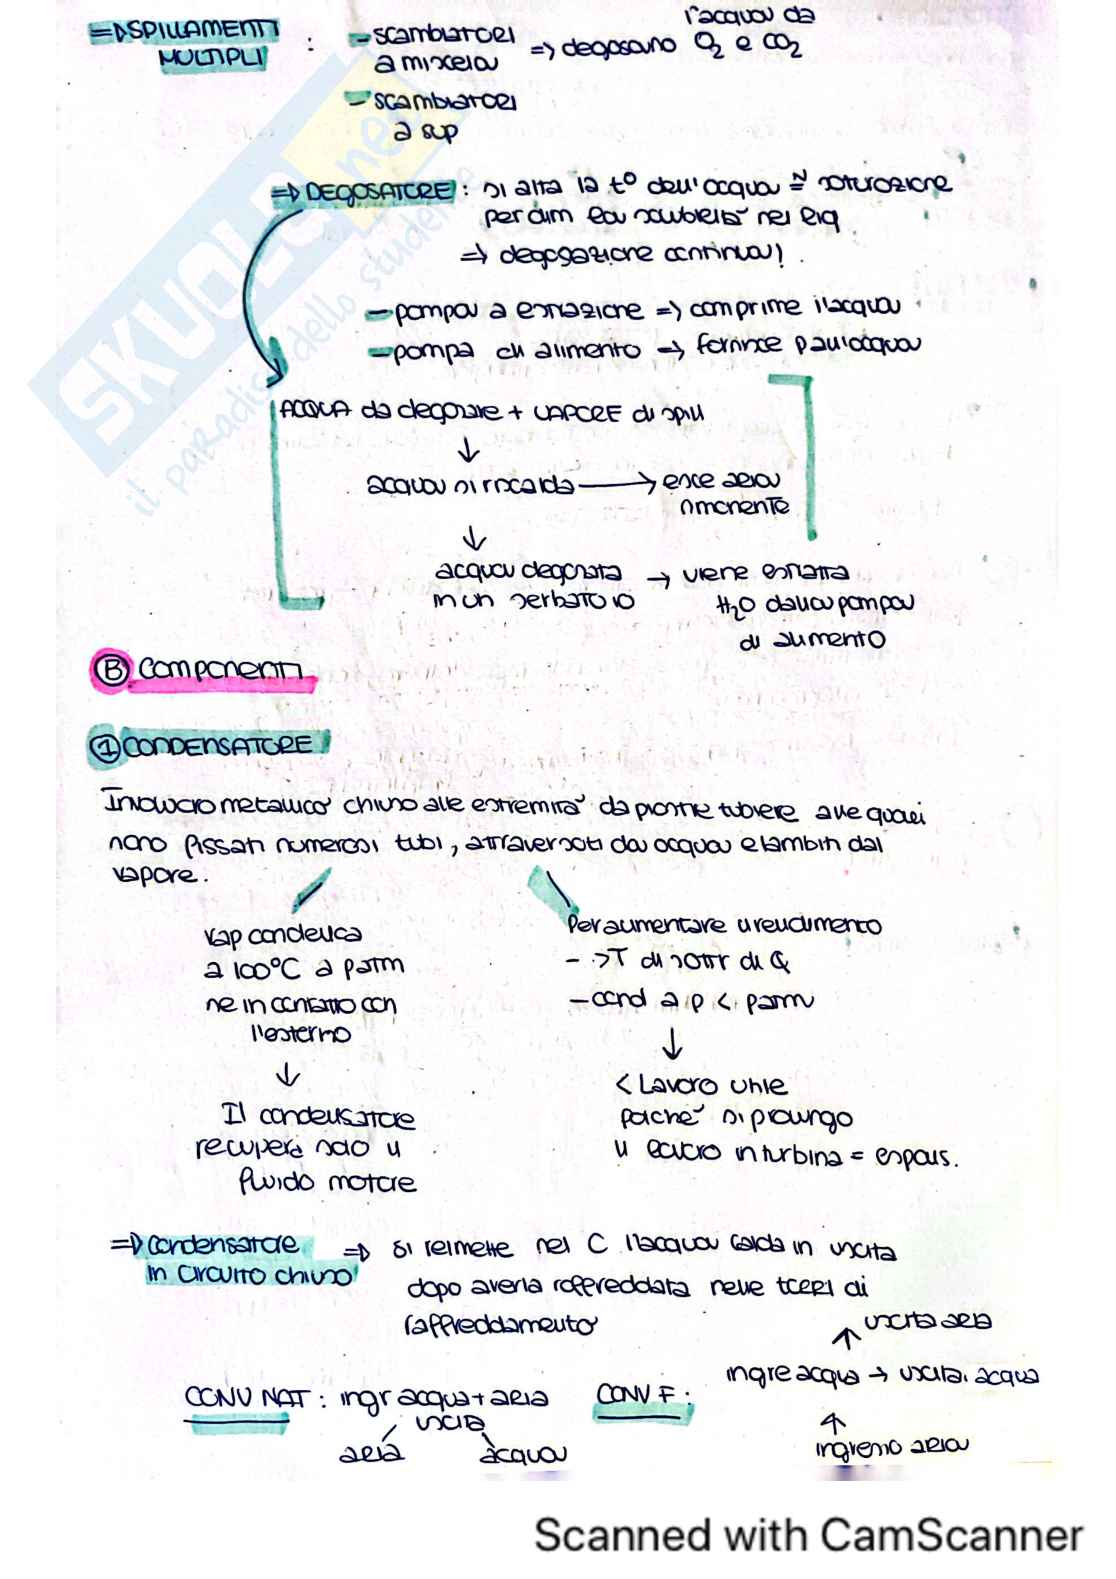 => SPILLAMENTI MULTIPLI :
- scambiatori a miscela => degasano l'acqua da O2 e CO2
- scambiatori a sup
=> DEGASATORE : si alza la t° dell'acqua ≅ saturazione
per dim la solubilità nel liq.
=> degasazione continua!
- pompa a estrazione => comprime l'acqua
- pompa di alimento → fornisce p all'acqua
ACQUA da degasare + VAPORE di spill
↓
acqua si riscalda → esce aria
rimanente
↓
acqua degasata → viene estratta
in un serbatoio H2O dalla pompa
di alimento
B Componenti
1 CONDENSATORE
Involucro metallico chiuso alle estremità da piastre tubiere alle quali
sono fissati numerosi tubi, attraversati da acqua e lambiti dal
vapore.
vap condensa
a 100°C a patm
se in contatto con
l'esterno
↓
Il condensatore
recupera solo il
fluido motore
Per aumentare il rendimento
- >T di sottr di Q
- cond a p < patm
↓
< Lavoro utile
poiché si prolunga
il lavoro in turbina = espans.
=> condensatore
in circuito chiuso
=> si reimette nel C l'acqua calda in uscita
dopo averla raffreddata nelle torri di
raffreddamento
CONV NAT : ingr acqua + aria
uscita
aria acqua
CONV F :
uscita aria
↑
ingre acqua → uscita acqua
↑
ingresso aria
SKUOLA.net
il paradiso dello studente
Scanned with CamScanner